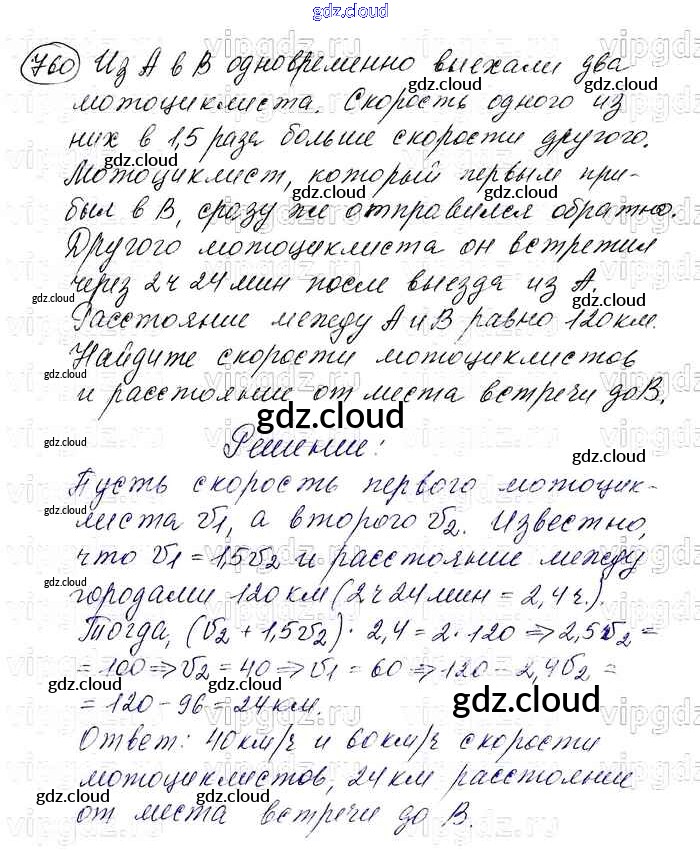 gdz.cloud
760 Из А в В одновременно выехали два
мотоциклиста. Скорость одного из
них в 1,5 раза больше скорости другого.
Мотоциклист, который первым при-
был в В, сразу же отправился обратно.
Другого мотоциклиста он встретил
через 2 ч 24 мин после выезда из А.
Расстояние между А и В равно 120 км.
Найдите скорости мотоциклистов
и расстояние от места встречи до В.
gdz.cloud
Решение:
Пусть скорость первого мотоцик-
листа v1, а второго v2. Известно,
что v1 = 1,5v2 и расстояние между
городами 120 км (2 ч 24 мин = 2,4 ч.).
Тогда, (v2 + 1,5v2) · 2,4 = 2 · 120 ⇒ 2,5v2 =
= 100 ⇒ v2 = 40 ⇒ v1 = 60 ⇒ 120 - 2,4v2 =
= 120 - 96 = 24 км.
gdz.cloud
Ответ: 40 км/ч и 60 км/ч скорости
мотоциклистов, 24 км расстояние
от места встречи до В.